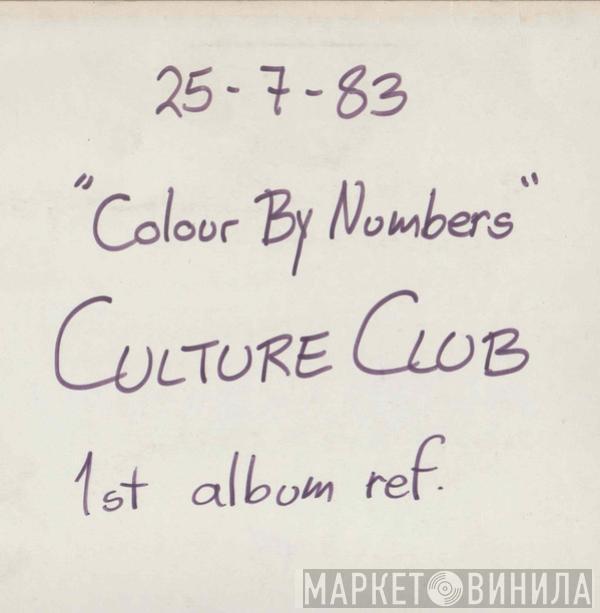 25-7-83
"Colour By Numbers"
CULTURE CLUB
1st album ref.
МАРКЕТ ВИНИЛА